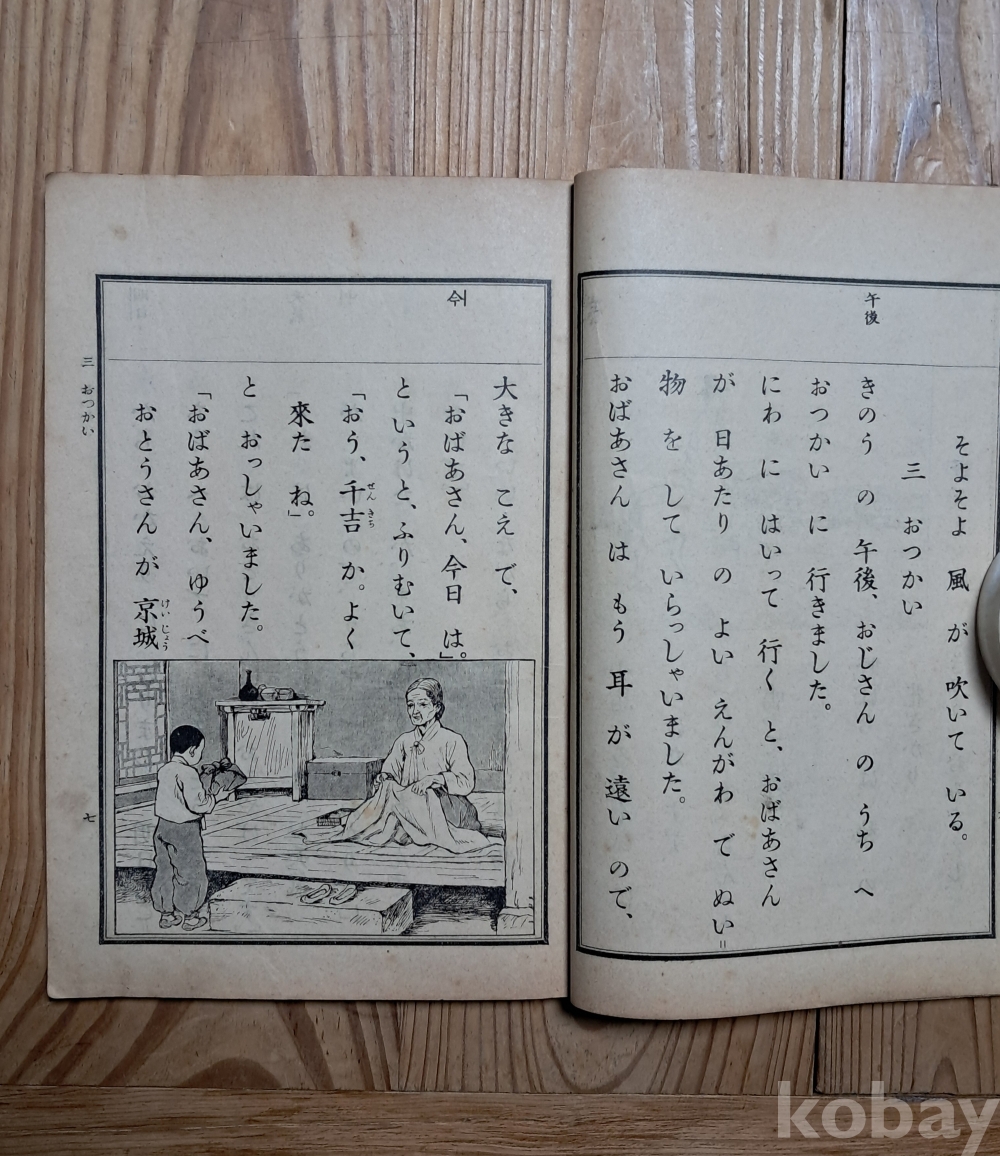 午後
そよそよ 風 が 吹いて いる。
三 おつかい
きのう の 午後、おじさん の うち へ
おつかい に 行きました。
にわ に はいって 行く と、おばあさん
が 日あたり の よい えんがわ で ぬい=
物 を して いらっしゃいました。
おばあさん は もう 耳 が 遠い ので、
大きな こえ で、
「おばあさん、今日 は。」
と いう と、ふりむいて、
「おう、千吉 か。よく
せんきち
來た ね。」
と おっしゃいました。
「おばあさん、ゆうべ
おとうさんが 京城
けいじょう
三 おつかい
七
kobay